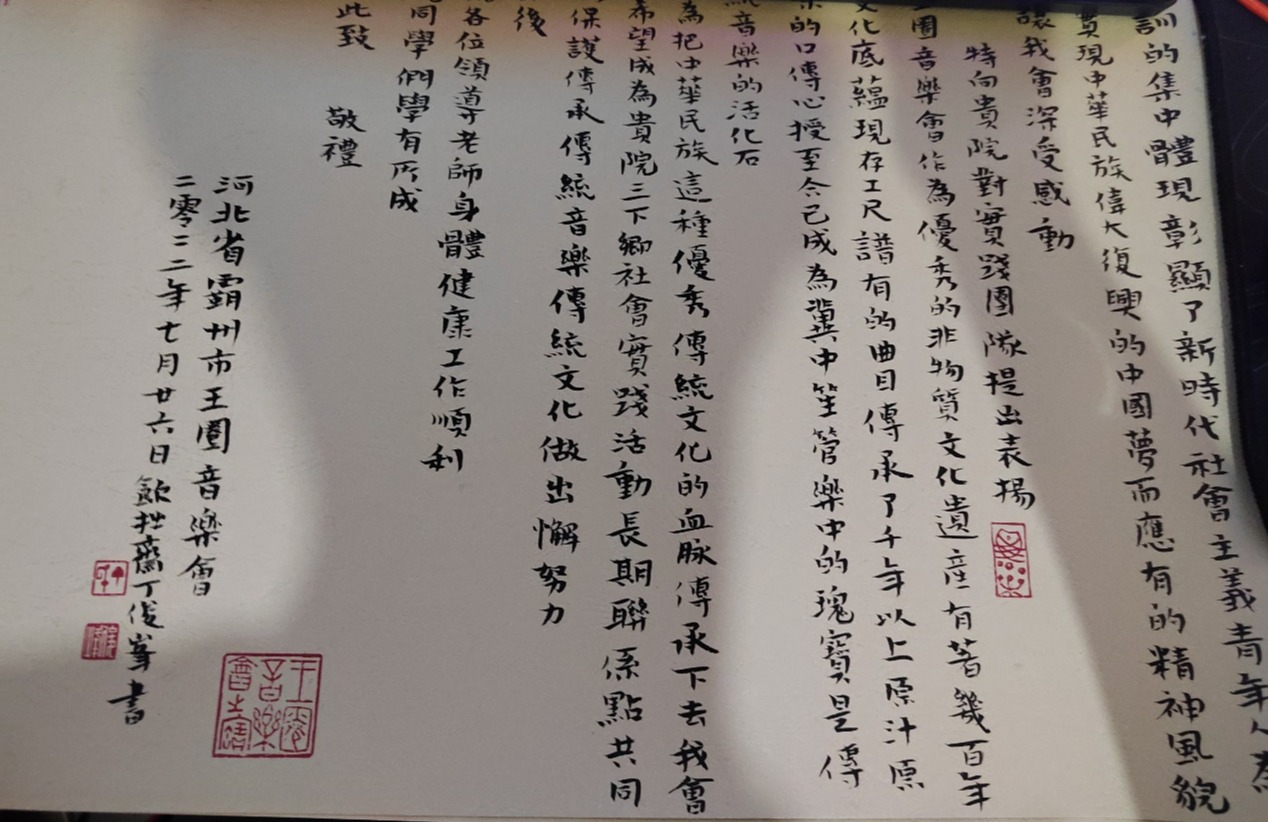 訓的集中體現彰顯了新時代社會主義青年人為
實現中華民族偉大復興的中國夢而應有的精神風貌
讓我會深受感動
特向貴院對實踐團隊提出表揚
圈音樂會作為優秀的非物質文化遺產有著幾百年
文化底蘊現存工尺譜有的曲目傳承了千年以上原汁原
的口傳心授至今已成為冀中笙管樂中的瑰寶是傳
統音樂的活化石
為把中華民族這種優秀傳統文化的血脈傳承下去我會
希望成為貴院三下鄉社會實踐活動長期聯係點共同
保護傳承傳統音樂傳統文化做出懈努力
後
各位領導老師身體健康工作順利
同學們學有所成
此致
敬禮
河北省霸州市王圈音樂會
二零二二年七月廿六日歙拙齋丁俊峯書
王圈音樂會之